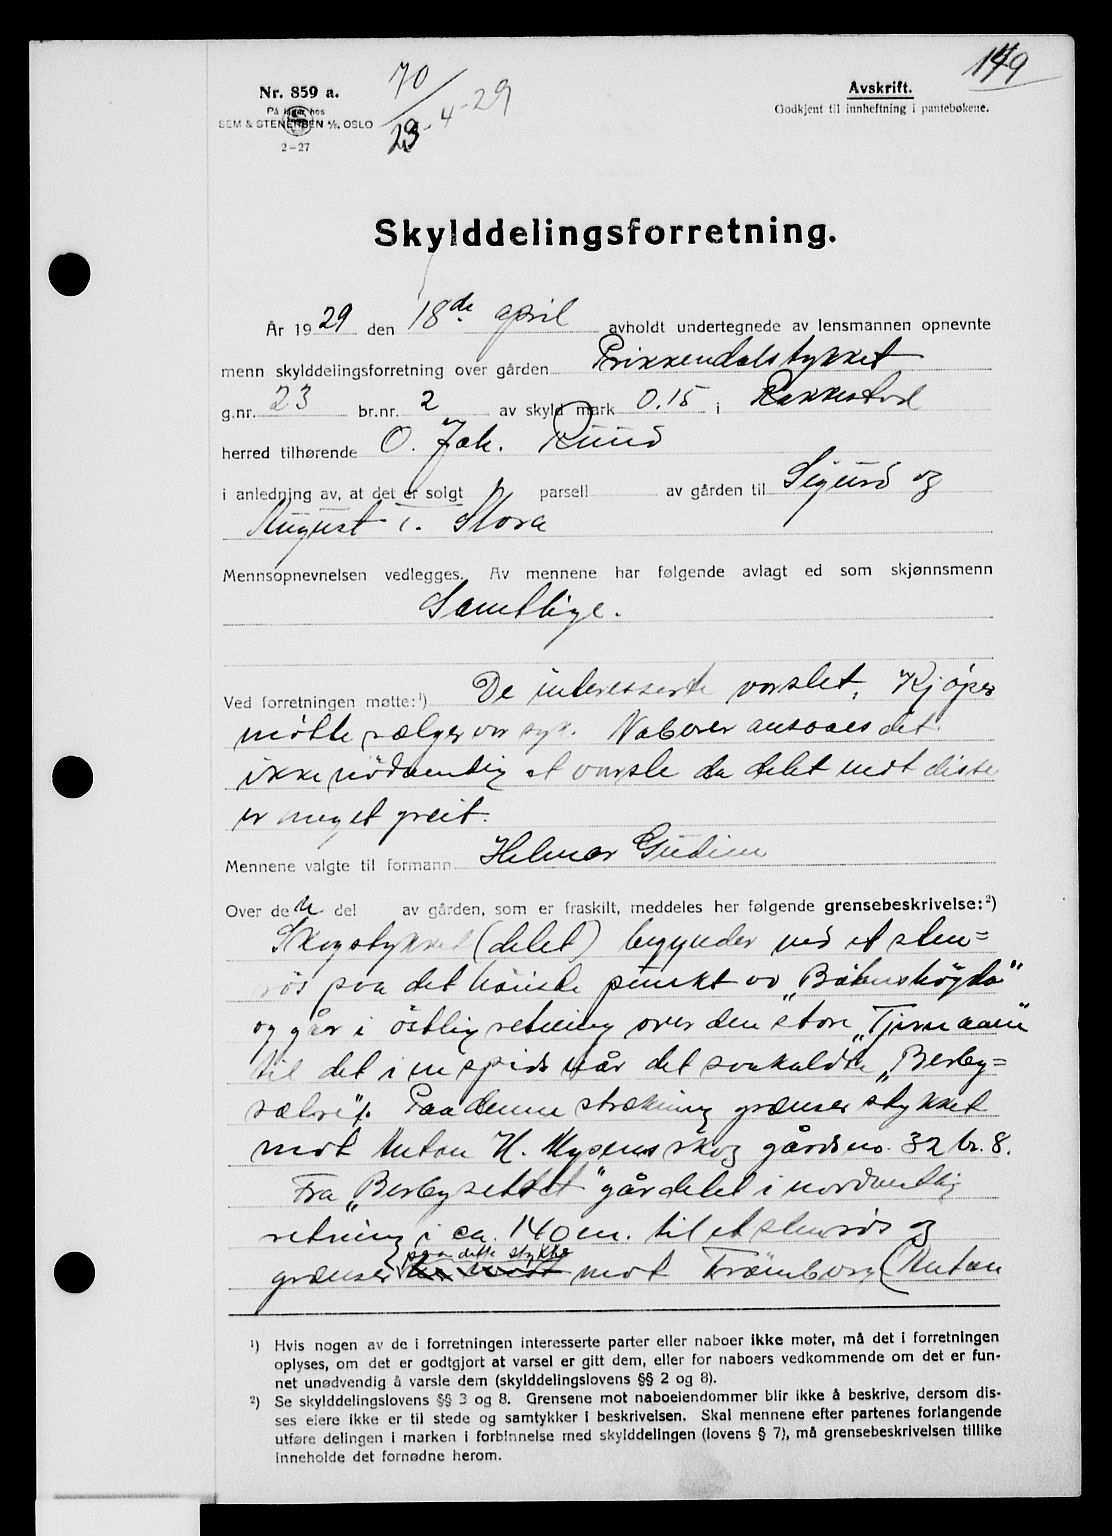 149
Nr. 859 a.
På lager hos
SEM & STENERSEN A/S, OSLO
2-27
70/23-4-29
Avskrift.
Godkjent til innheftning i pantebøkene.
Skylddelingsforretning.
År 1929 den 18de april avholdt undertegnede av lensmannen opnevnte
menn skylddelingsforretning over gården Prikkendalstykket
g.nr. 23 br.nr. 2 av skyld mark 0.15 i Rakkestad
herred tilhørende O. Joh. Ruud
i anledning av, at det er solgt parsell av gården til Sigurd og
August T. Slora
Mennsopnevnelsen vedlegges. Av mennene har følgende avlagt ed som skjønnsmenn
Samtlige.
Ved forretningen møtte:¹) De interesserte varslet. Kjøper
møtte sælger var syk. Naboer ansaaes det
ikke nödvendig at varsle da delet mot disse
er meget greit.
Mennene valgte til formann Helmer Gudim
Over den del av gården, som er fraskilt, meddeles her følgende grensebeskrivelse:²)
Skogstykket (delet) begynder ved et sten=
rös paa det höieste punkt av
og går i östlig retning over den store
til det i en spids når det saakaldte „Berby=
sætre". Paa denne strækning grænser stykket
mot Anton H. Mysens skog gårdsno. 32 br. 8.
Fra „Berbysettet" går delet i nordvestlig
retning i ca. 140 m. til et stenrös og
paa dette stykke
grænser mot Frömborg (Anton
¹) Hvis nogen av de i forretningen interesserte parter eller naboer ikke møter, må det i forretningen
oplyses, om det er godtgjort at varsel er gitt dem, eller for naboers vedkommende om det er fun-
net unødvendig å varsle dem (skylddelingslovens §§ 2 og 8).
²) Se skylddelingslovens §§ 3 og 8. Grensene mot naboeiendommer blir ikke å beskrive, dersom dis-
ses eiere ikke er til stede og samtykker i beskrivelsen. Skal mennene efter partenes forlangende
utføre delingen i marken i forbinnelse med skylddelingen (lovens § 7), må grensebeskrivelsen tillike
inneholde det fornødne herom.